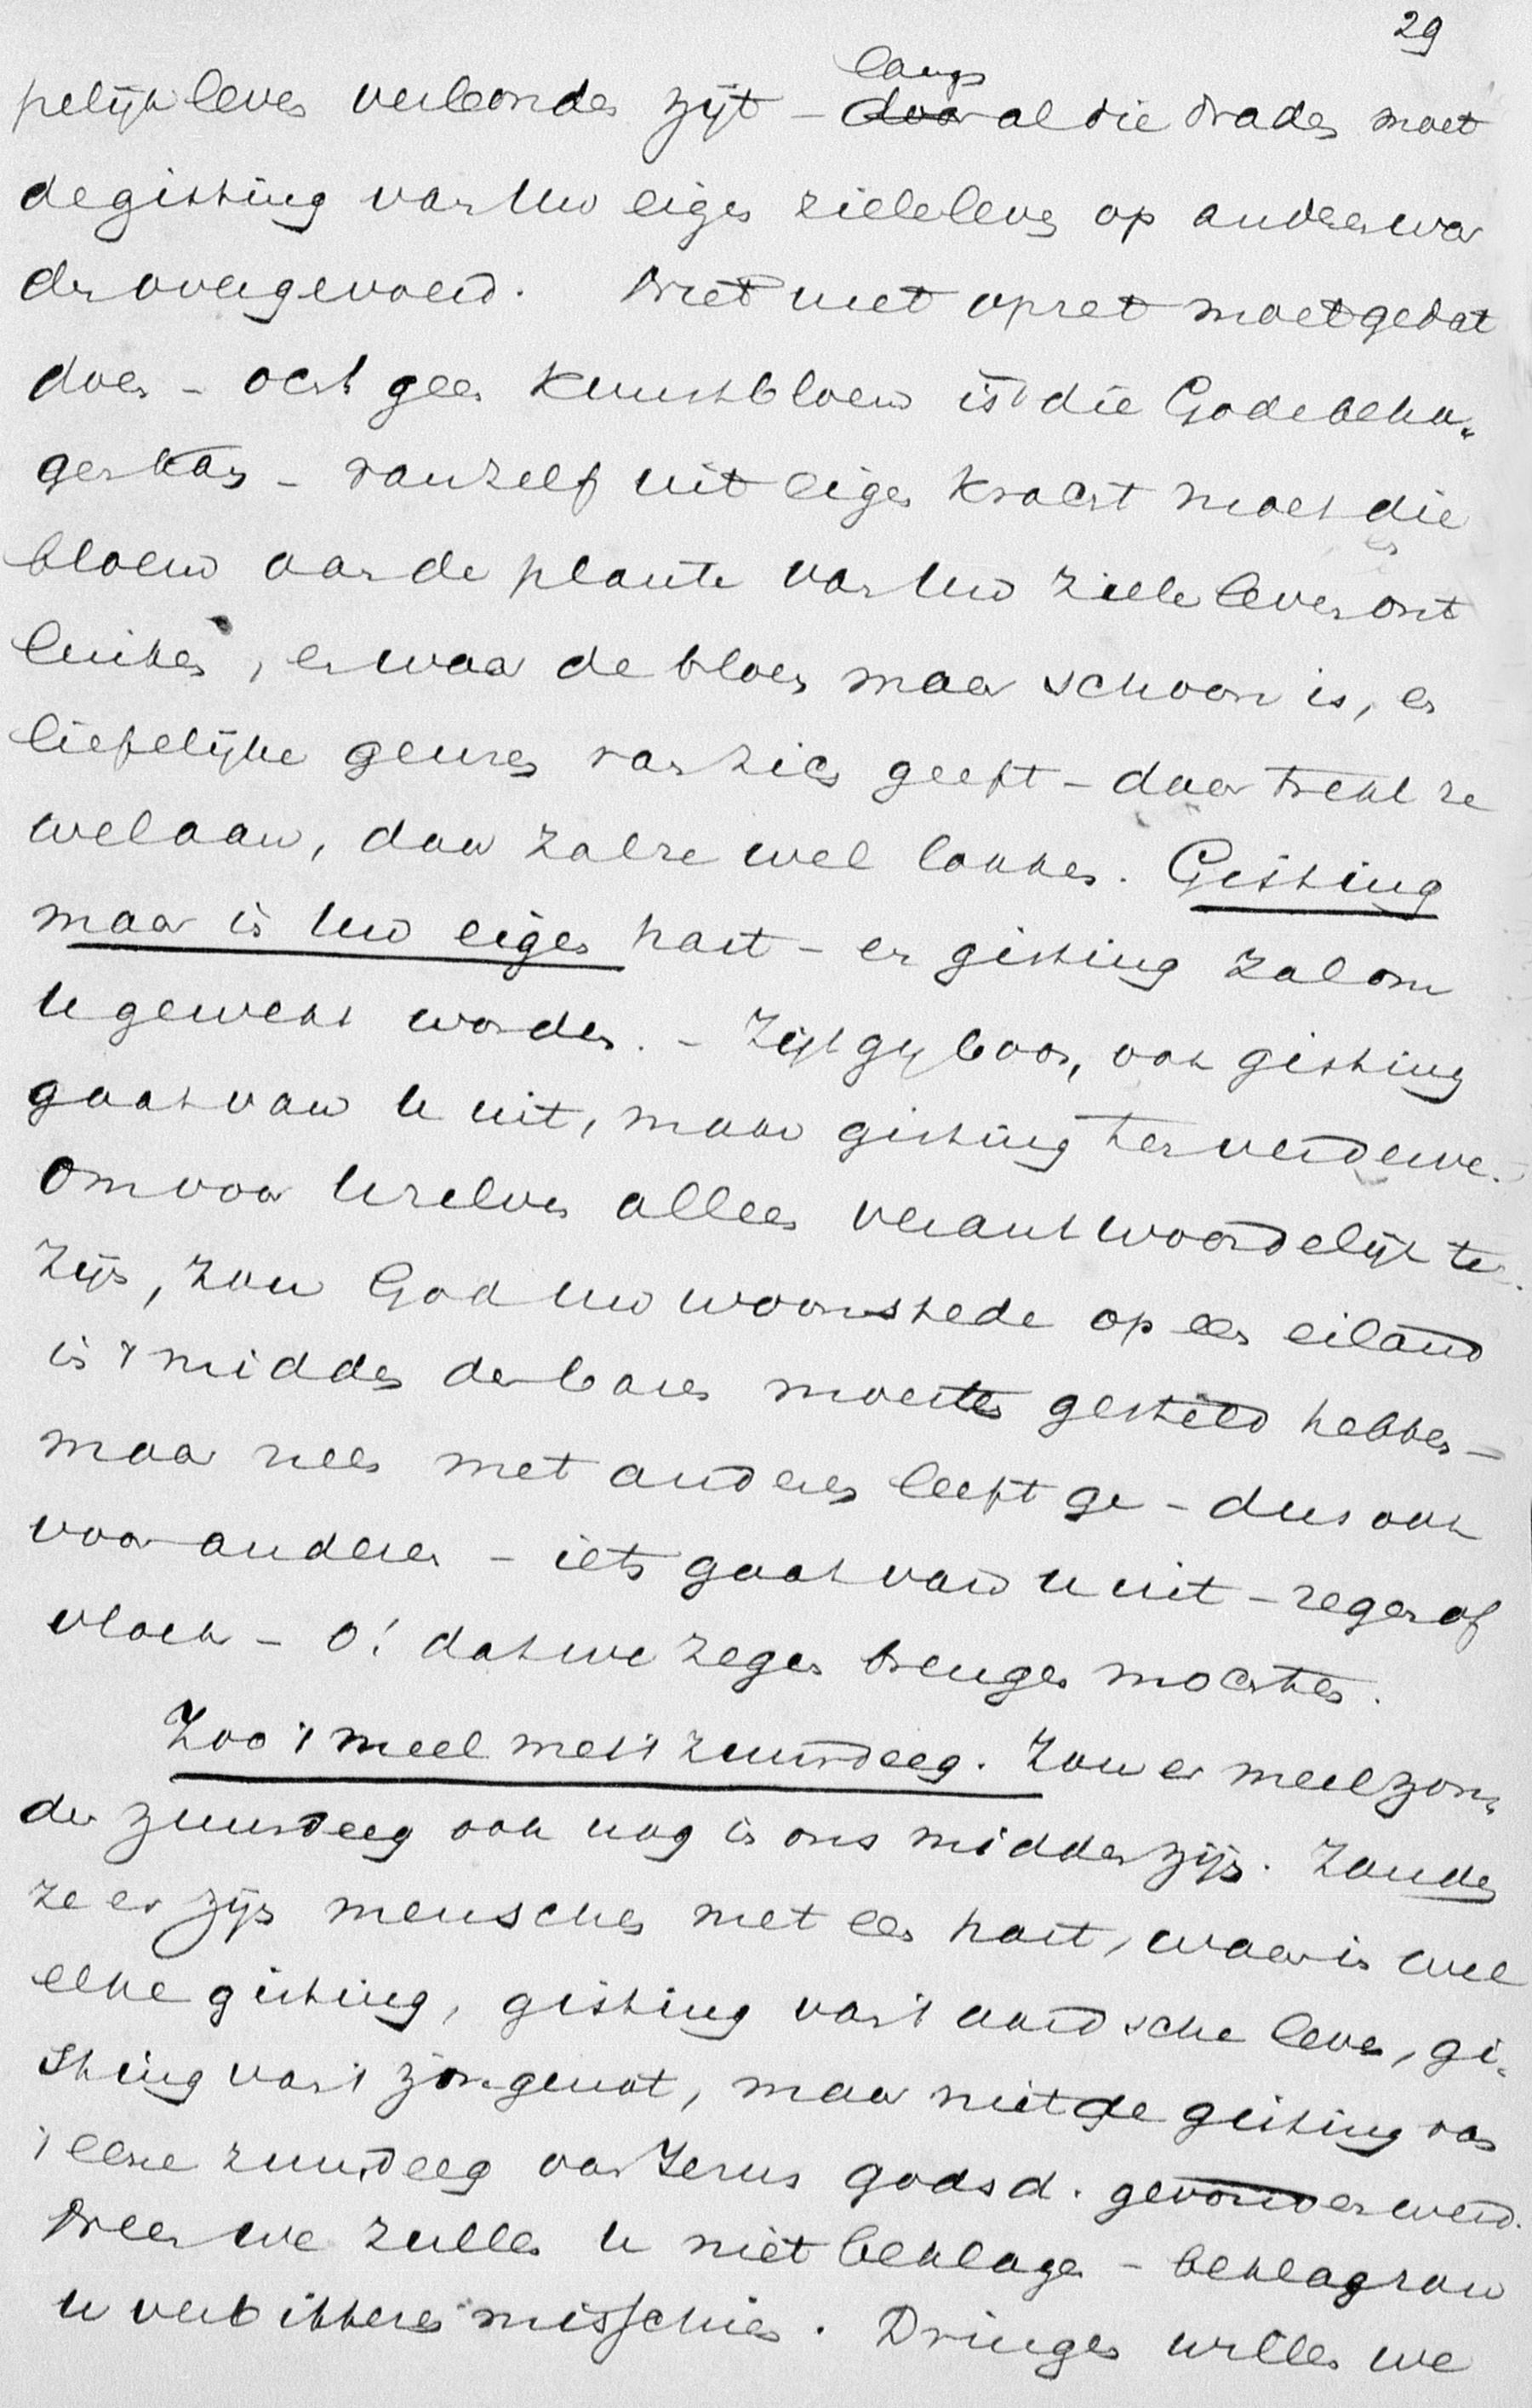 29
pelijk leven verbonden zijt – langs door al die draden moet
de gisting van Uw eigen zieleleven op anderen wor
den overgevoerd. Niet met opzet moet ge dat
doen – och geen kunstbloem is 't die Gode beha-
gen kan – vanzelf uit eigen kracht moet die
bloem aan de plante van Uw zieleleven ont
luiken, en waar de bloem maar schoon is, en
liefelijke geuren van zich geeft – daar trekt ze
wel aan, daar zal ze wel lokken. Gisting
maar in Uw eigen hart – en gisting zal om
U gewekt worden. – Zijt gy boos, ook gisting
gaat van U uit, maar gisting ten verderve.
Om voor Uzelven alleen verantwoordelijk te
zijn, zou God Uw woonstede op een eiland
in 't midden der baren moeten gesteld hebben –
maar neen met anderen leeft ge – dus ook
voor anderen – iets gaat van U uit – zegen of
vloek – o! dat we zegen brengen mochten.
Zoo 't meel met 't zuurdeeg. Zou er meel zon-
der zuurdeeg ook nog in ons midden zijn. Zouden
ze er zijn menschen met een hart, waarin wel
elke gisting, gisting van 't aardsche leven, gi-
sting van 't zongenot, maar niet de gisting van
't eene zuurdeeg van Jezus godsd. gevonden werd.
Neen we zullen U niet beklagen – beklag zou
U verbitteren misschien. Dringen willen we